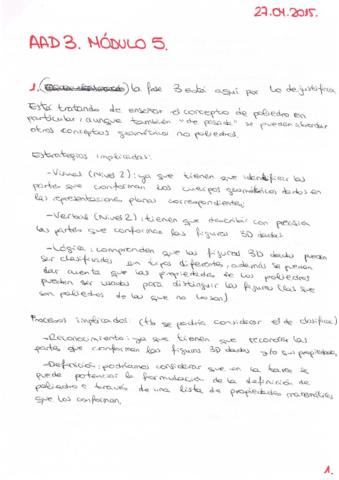 27.04.2015.
AAD 3. MÓDULO 5.
1. la fase 3 está aquí por lo de justifica
Está tratando de enseñar el concepto de poliedro en
particular, aunque también "de pasada" se pueden abordar
otros conceptos geométricos no poliedros.
Estrategias implicadas:
- Visual (Nivel 2): ya que tienen que identificar las
partes que conforman los cuerpos geométricos dados en
las representaciones planas correspondientes;
- Verbal (Nivel 2): tienen que describir con precisión
las partes que conforman las figuras 3D dadas.
- Lógica: comprenden que las figuras 3D dadas pueden
ser clasificadas en tipos diferentes, además se pueden
dar cuenta que las propiedades de los poliedros
pueden ser usadas para distinguir las figuras (las que
son poliedros de las que no lo son)
Procesos implicados: (No se podría considerar el de clasificar)
- Reconocimiento: ya que tienen que reconocer las
partes que conforman las figuras 3D dadas y/o sus propiedades.
- Definición: podríamos considerar que en la tarea se
puede potenciar la formulación de la definición de
poliedro a través de una lista de propiedades matemáticas
que los conforman.
1.